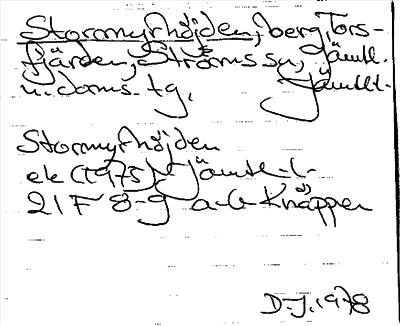 Stormyrhöjden, berg, Tors-
fjärden, Ströms sn, Jämtl.
n. doms. tg. Jämtl.
Stormyrhöjden
ek (1975) Jämtl. l.
21F 8-g a-b Knäppen
D-J. 1978